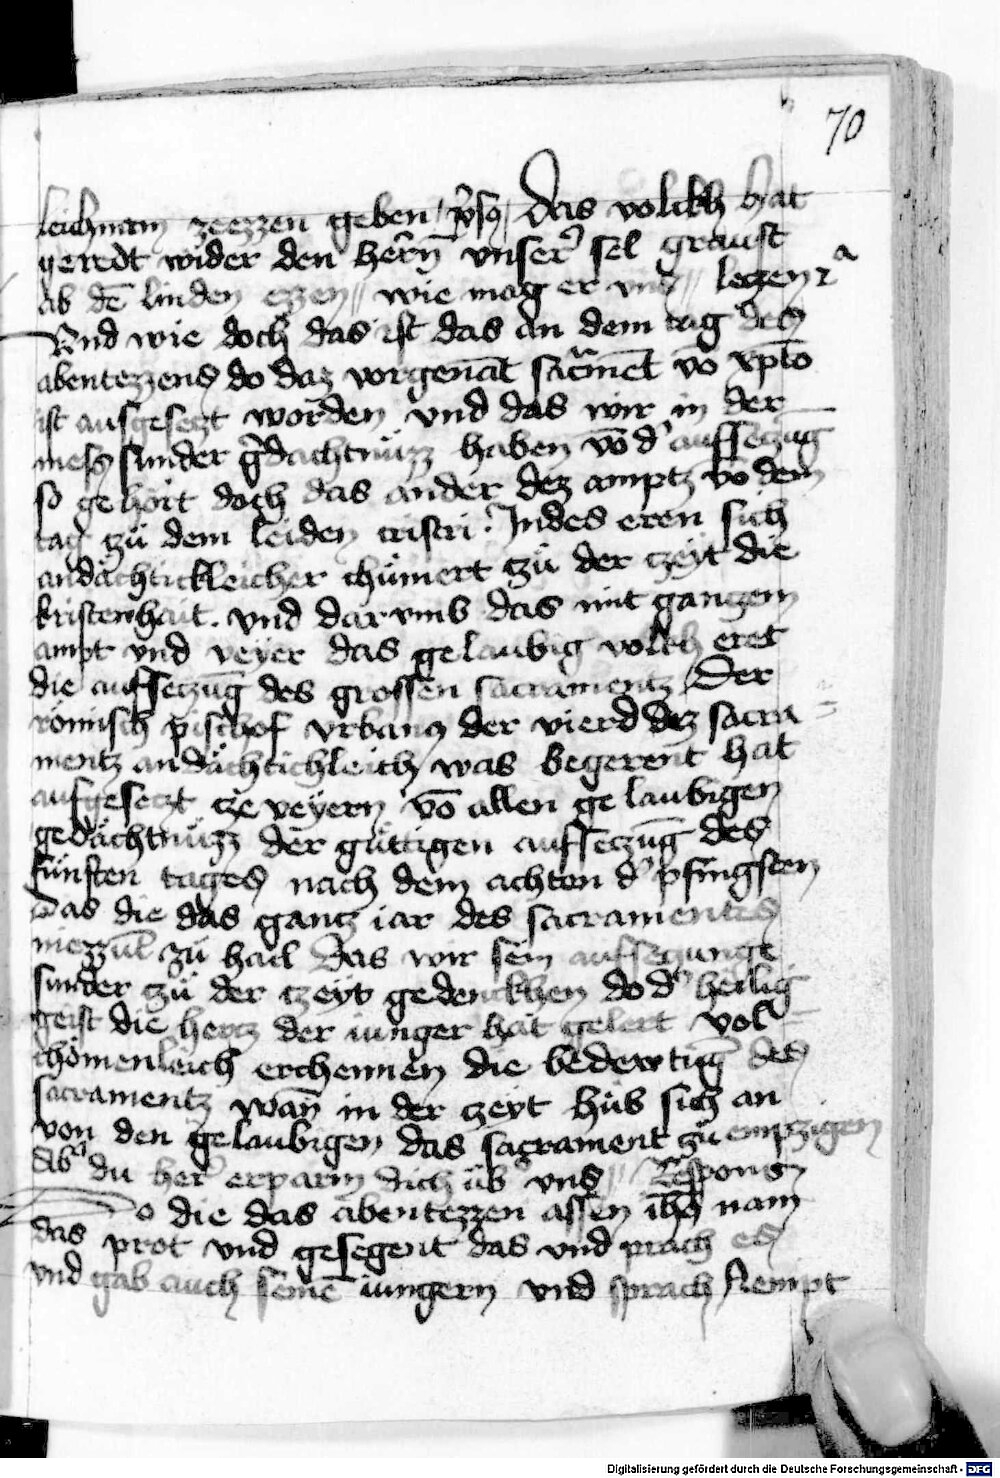 70
leichnam zeezzen geben / Das volckh hat
geredt wider den herrn̄ vnser sel graust
ab dē linden ezzen // wie mag er vns // leczen
Vnd wie doch das ist das an dem tag des
abentezzens do daz vorgenāt sacͬmēt vo xp̄to
ist aufgeseczt worden vnd das wir in der
mess sunder gedachtnüzz haben vō dˀ aufseczūg
so gehört doch das ander dez amptz vo dem
tag zü dem leiden cristi. Indes eren sich
andächtickleicher chümert zü der czeyt die
kristenhait. vnd dar vmb das mit ganczem
ampt vnd veyer das gelaubig volkh eret
die aufseczūg des grossen sacramentz Der
römisch pischof vrbanus der vierd dez sacra
mentz andächtichleich was begerent hat
aufgeseczt cze veyern vō allen gelaubigen
gedächtnüzz der güttigen aufseczūg des
fünften tages nach dem achten dˀ pfingsten
Das die das gantz iar des sacramentes
niezzen zü hail das wir sein aufseczunge
sunder zü der czeyt gedenckhen do dˀ heilig
geist die hertz der iunger hat gelert vol
chömenleich erchennen die bedewtūg des
sacramentz wan̄ in der czeyt hüb sich an
von den gelaubigen das sacrament zü emptzigen
abˀ du herˀ erparm dich übˀ vns // Respons
o die das abentezzen assen ih̄s nam
das prot vnd gesegent das vnd prach es
vnd gab auch seinē iungern vnd sprach Nempt
Digitalisierung gefördert durch die Deutsche Forschungsgemeinschaft - DFG